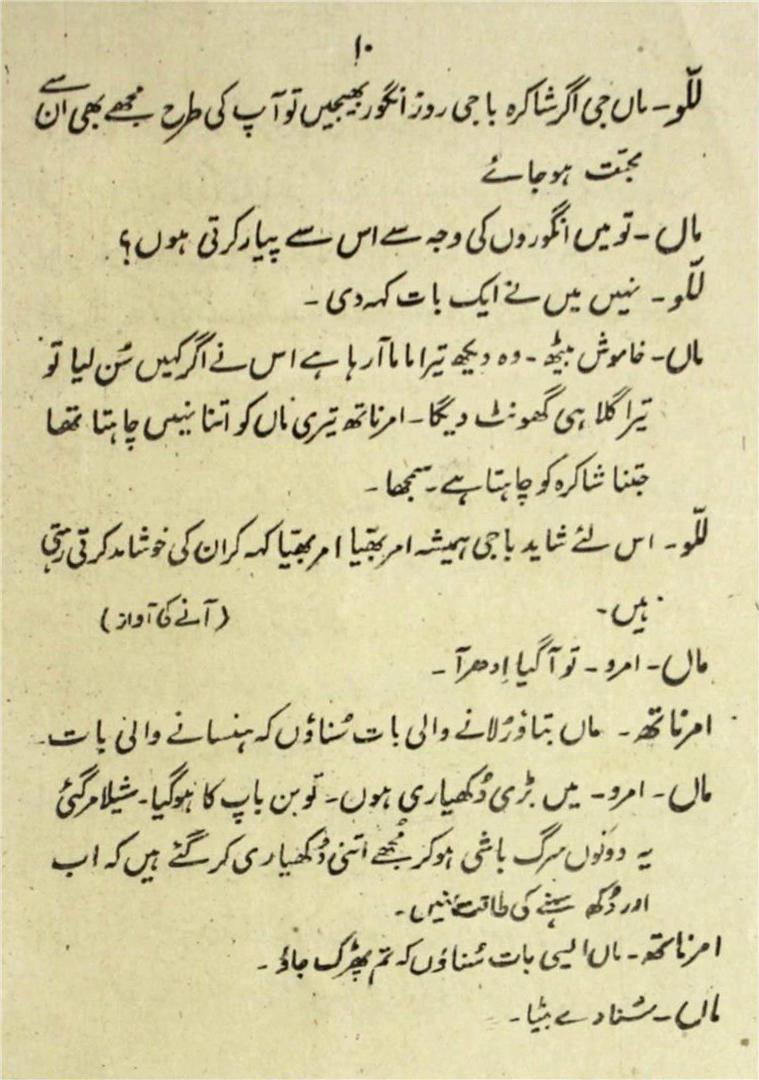 ۱۰
للّو۔ ماں جی اگر شاکرہ باجی روز انگور بھیجیں تو آپ کی طرح مجھے بھی ان سے
محبّت ہو جائے
ماں۔ تو میں انگوروں کی وجہ سے اس سے پیار کرتی ہوں؟
للّو۔ نہیں میں نے ایک بات کہہ دی۔
ماں۔ خاموش بیٹھ۔ وہ دیکھ تیرا ماما آ رہا ہے اس نے اگر کہیں سُن لیا تو
تیرا گلا ہی گھونٹ دیگا۔ امرناتھ تیری ماں کو اتنا نہیں چاہتا تھا
جتنا شاکرہ کو چاہتا ہے۔ سمجھا۔
للّو۔ اس لئے شاید باجی ہمیشہ امر بھیّا امر بھیّا کہہ کر ان کی خوشامد کرتی رہتی
ہیں۔ (آنے کا آواز)
ماں۔ امرو۔ تو آ گیا اِدھر آ۔
امرناتھ۔ ماں بتاؤ رُلانے والی بات سُناؤں کہ ہنسانے والی بات۔
ماں۔ امرو۔ میں بڑی دُکھیاری ہوں۔ تو بن باپ کا ہوگیا۔ شیلا مر گئی
یہ دونوں سرگ باشی ہو کر مُجھے اتنی دُکھیاری کر گئے ہیں کہ اب
اور دُکھ سہنے کی طاقت نہیں۔
امرناتھ۔ ماں ایسی بات سُناؤں کہ تم پھڑک جاؤ۔
ماں۔ سُنا دے بیٹا۔